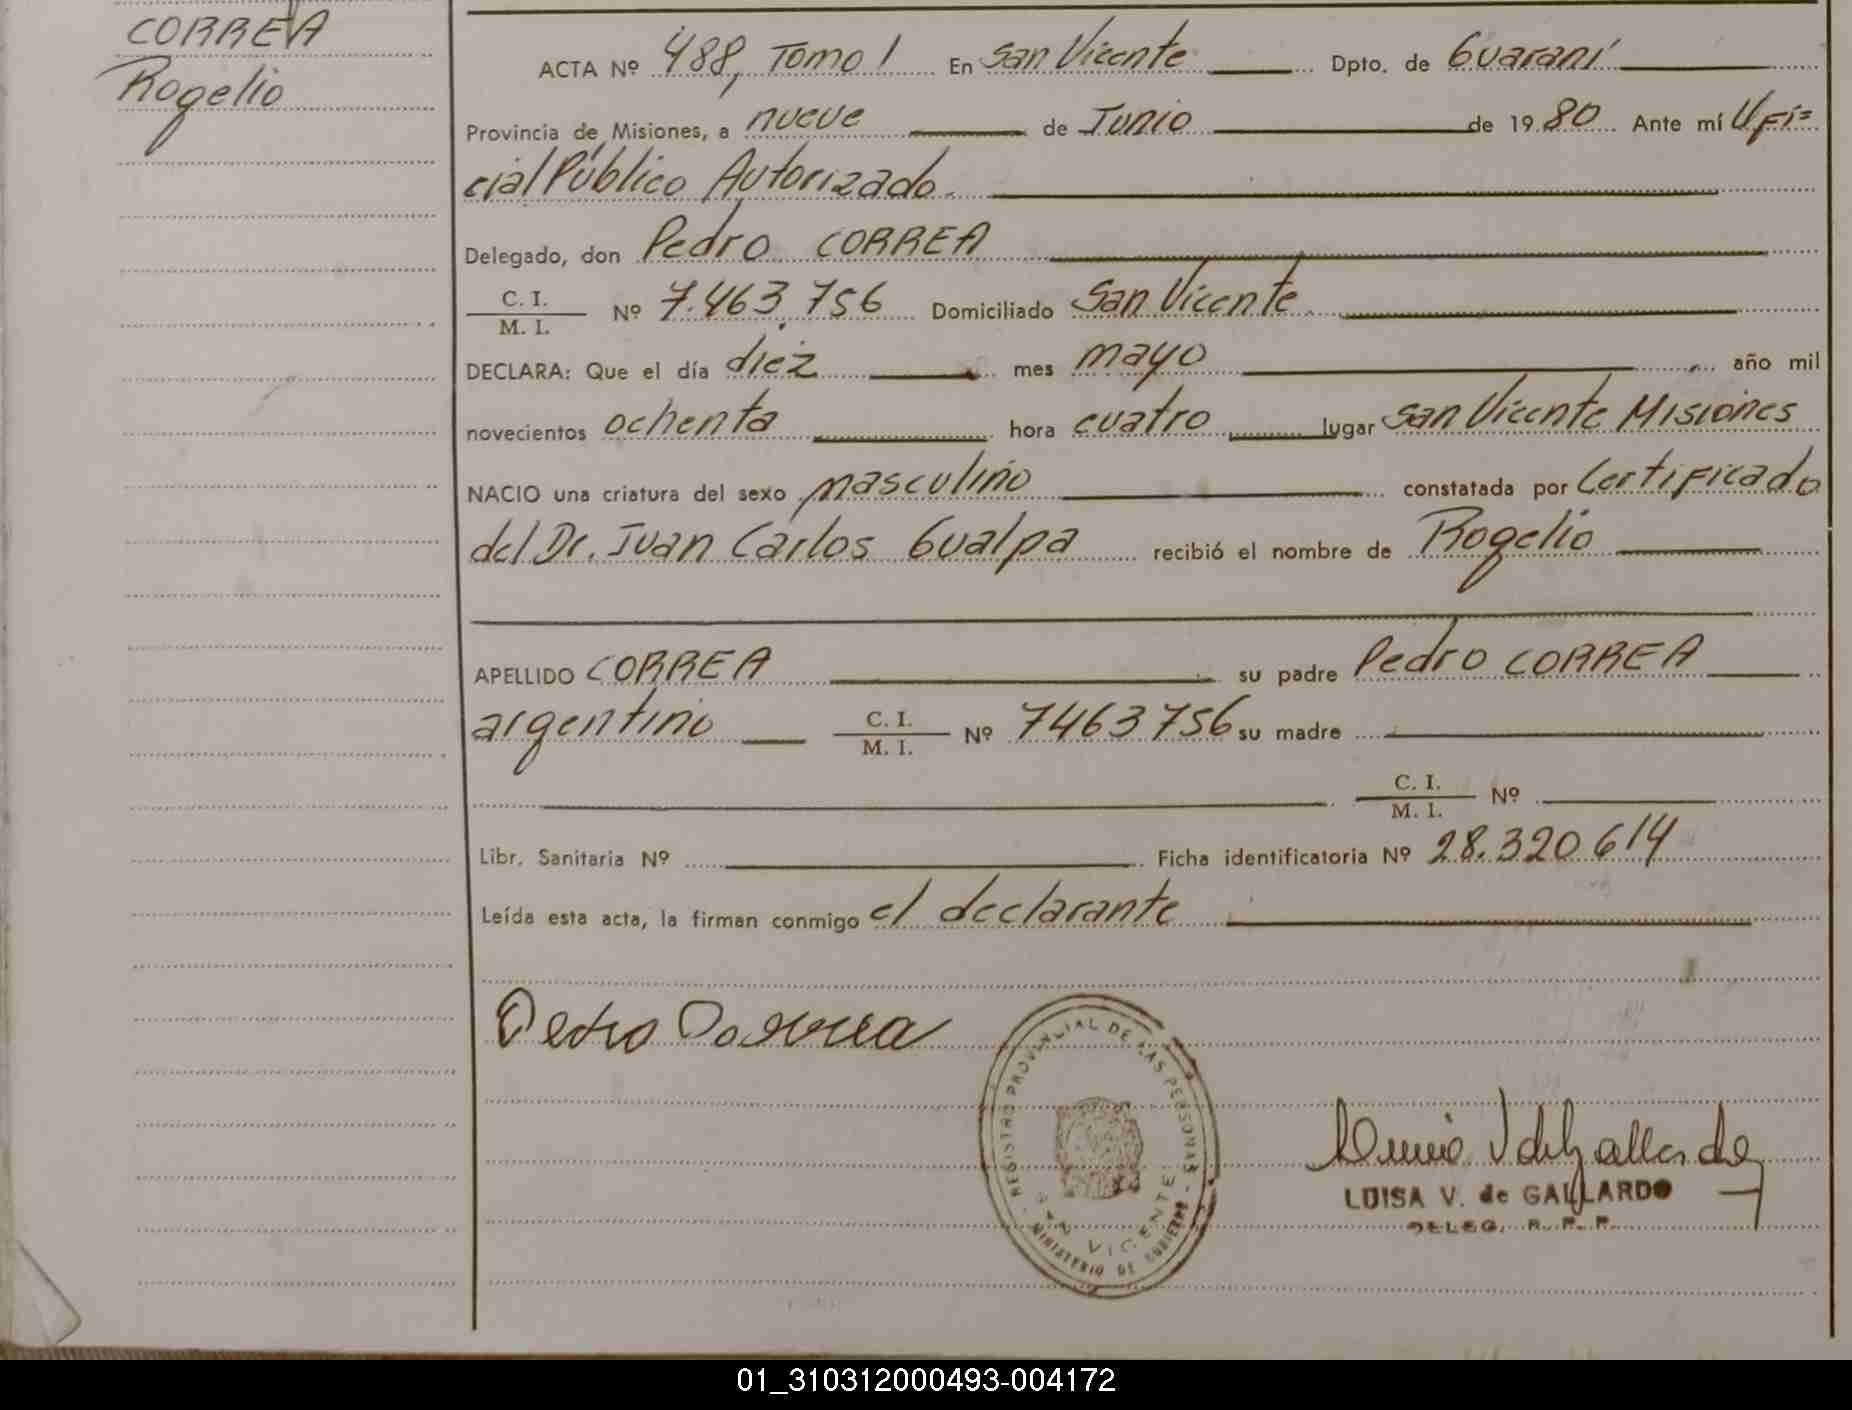 CORREA
Rogelio
ACTA Nº 488, Tomo 1 En San Vicente Dpto. de Guaraní
Provincia de Misiones, a nueve de Junio de 1980 Ante mí Ofi=
cial Público Autorizado.
Delegado, don Pedro CORREA
C. I.
M. I.
Nº 7.463.756 Domiciliado San Vicente.
DECLARA: Que el día diez mes mayo año mil
novecientos ochenta hora cuatro lugar San Vicente Misiones
NACIO una criatura del sexo masculino constatada por Certificado
del Dr. Juan Carlos Gualpa recibió el nombre de Rogelio
APELLIDO CORREA su padre Pedro CORREA
argentino C. I.
M. I.
Nº 7463756 su madre
C. I.
M. I.
Nº
Libr. Sanitaria Nº Ficha identificatoria Nº 28.320.614
Leída esta acta, la firman conmigo el declarante
Pedro Correa
REGISTRO PROVINCIAL DE LAS PERSONAS
SAN VICENTE
MINISTERIO DE GOBIERNO
LUISA V. de GALLARDO
DELEG. R. P. P.
01_310312000493-004172